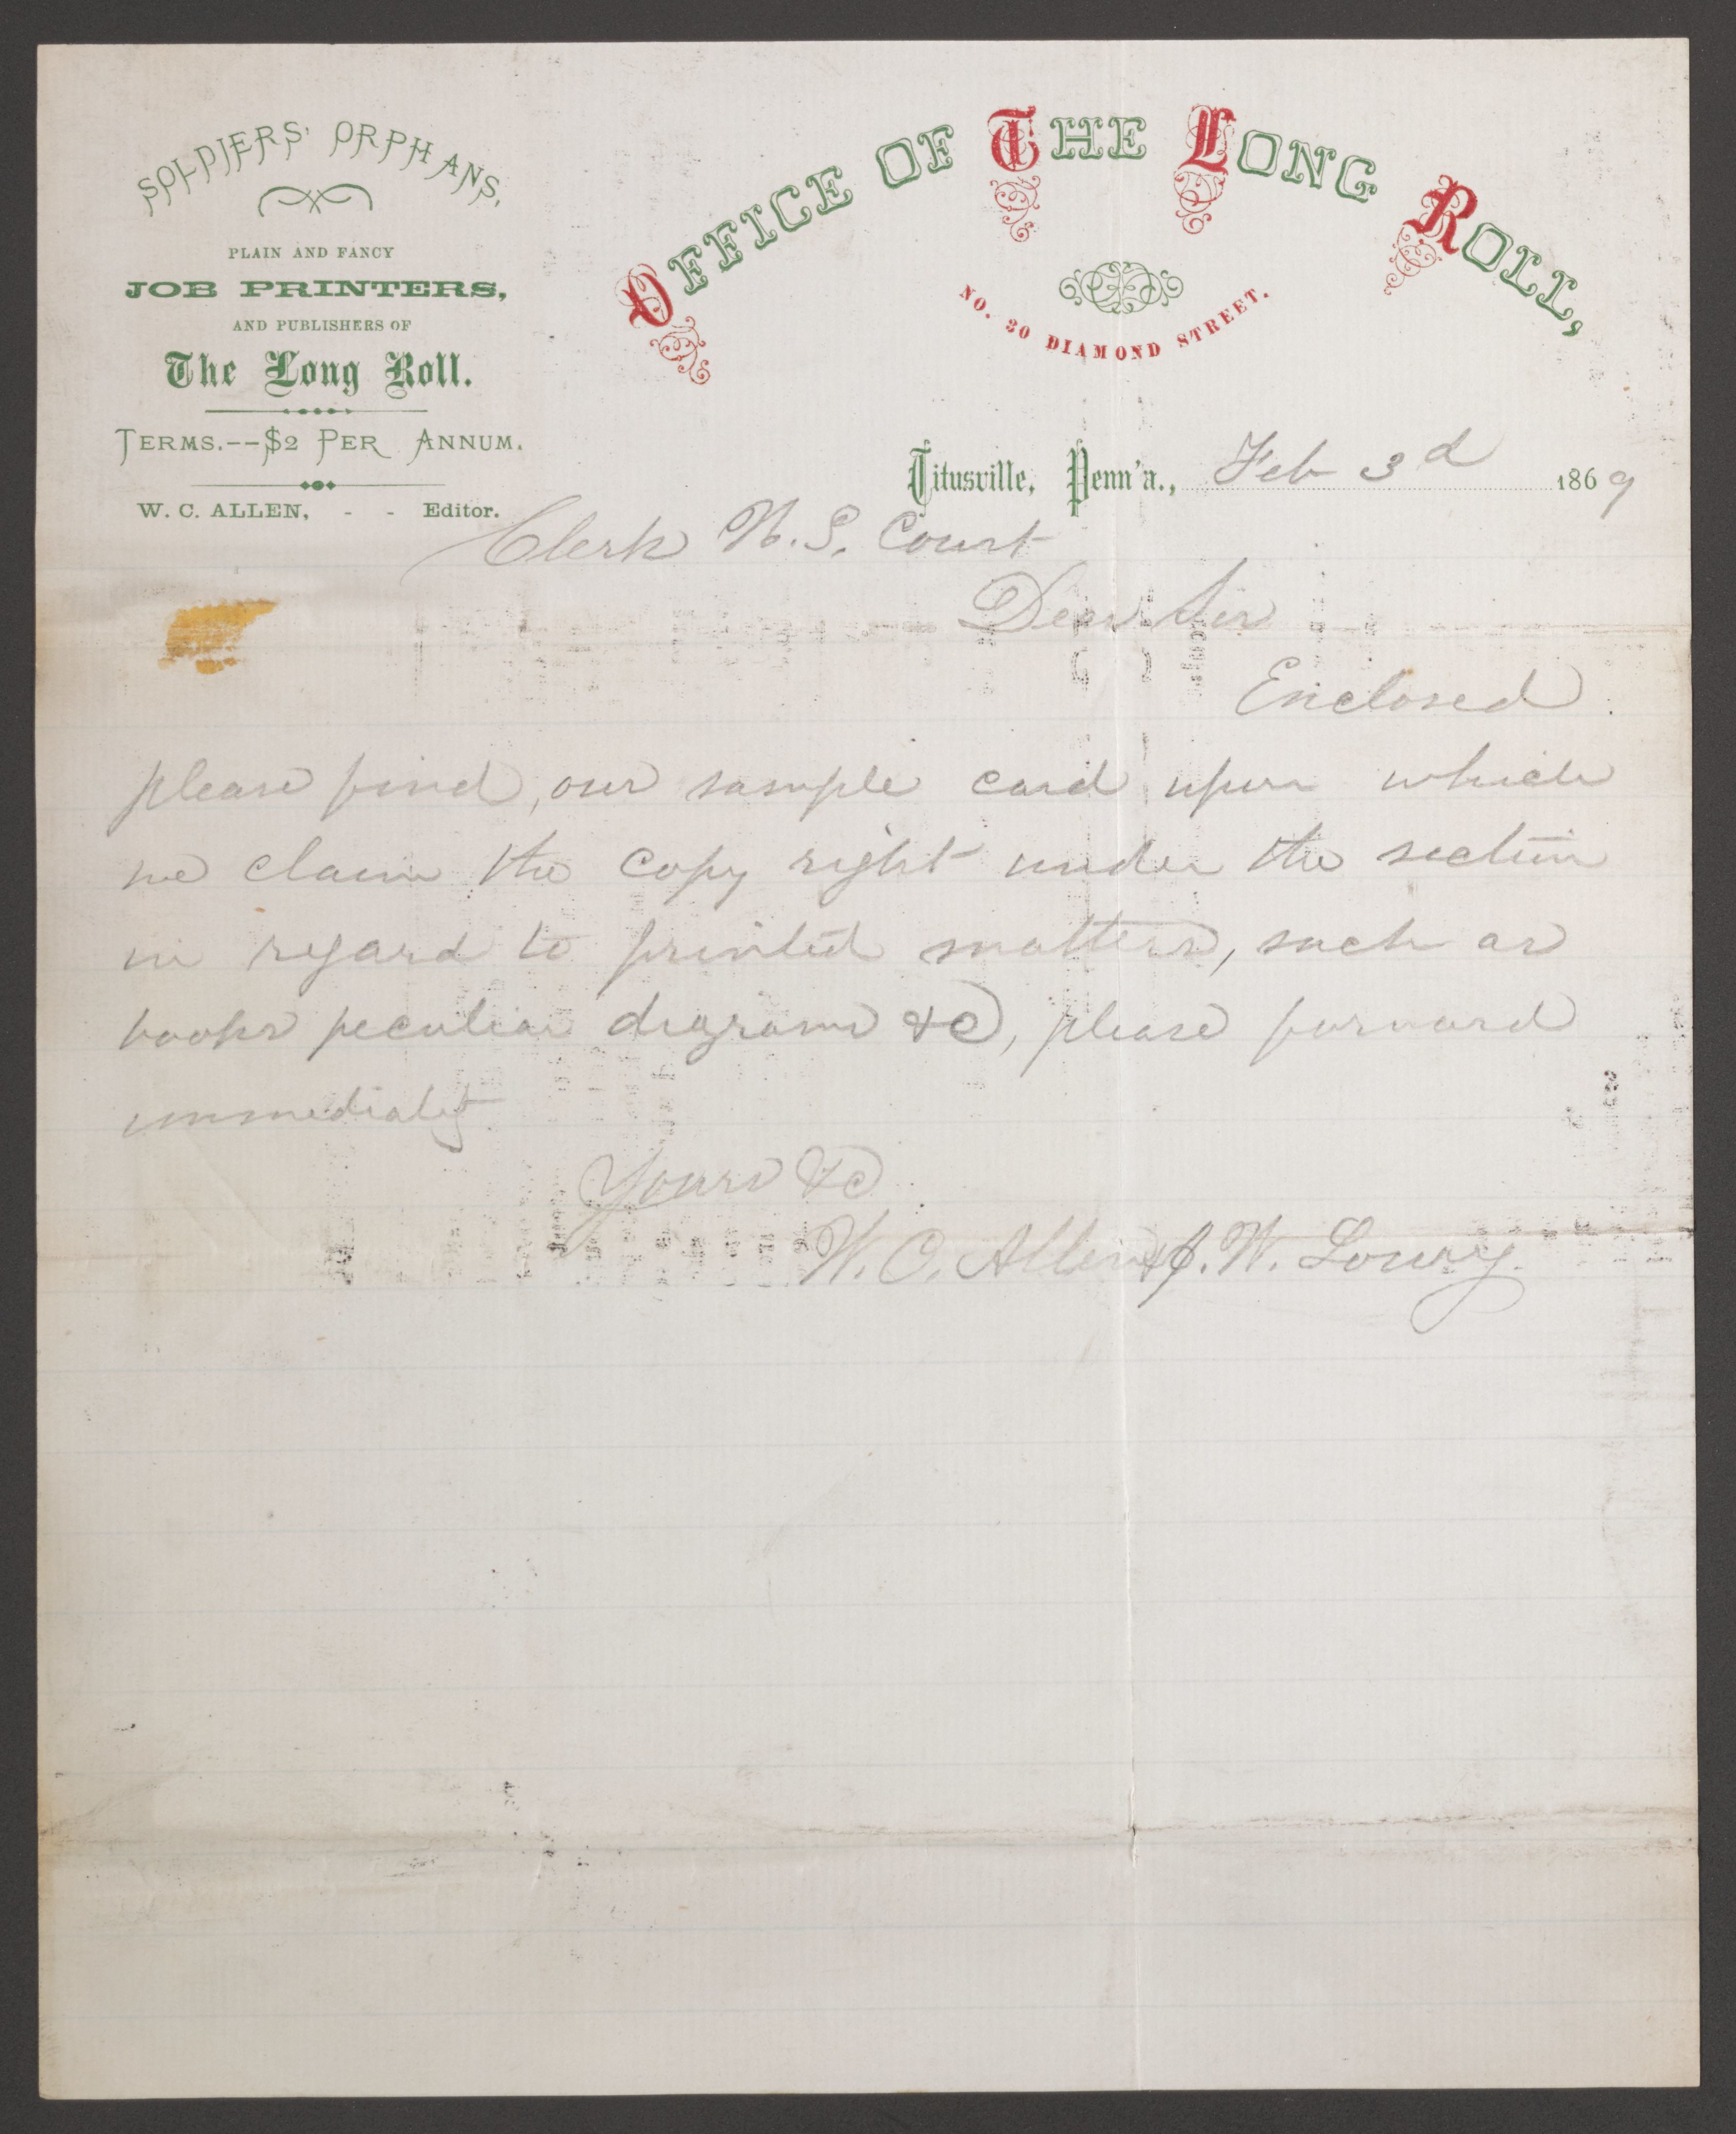 SOLDIERS' ORPHANS,
PLAIN AND FANCY
JOB PRINTERS,
AND PUBLISHERS OF
The Long Roll.
TERMS.--$2 PER ANNUM.
W. C. ALLEN, - - Editor.
OFFICE OF THE LONG ROLL,
NO. 30 DIAMOND STREET.
Titusville, Penn'a., Feb 3d 1869
Clerk U.S. Court
Dear Sir
Enclosed
please find, our sample card upon which
we claim the copy right under the section
in regard to printed matters, such as
books peculiar digrams &c, please forward
immediatly
Yours &c
W. C. Allen & J. W. Lowry.